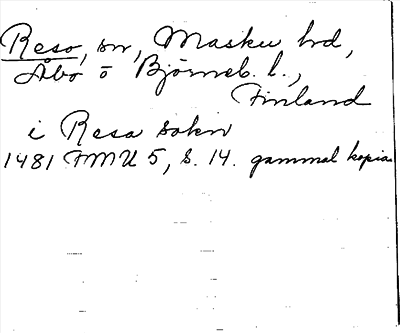 Reso, sn, Masku hd,
Åbo o Björneb. l.,
Finland
i Resa sokn
1481 FMU 5, s. 14. gammal kopia.